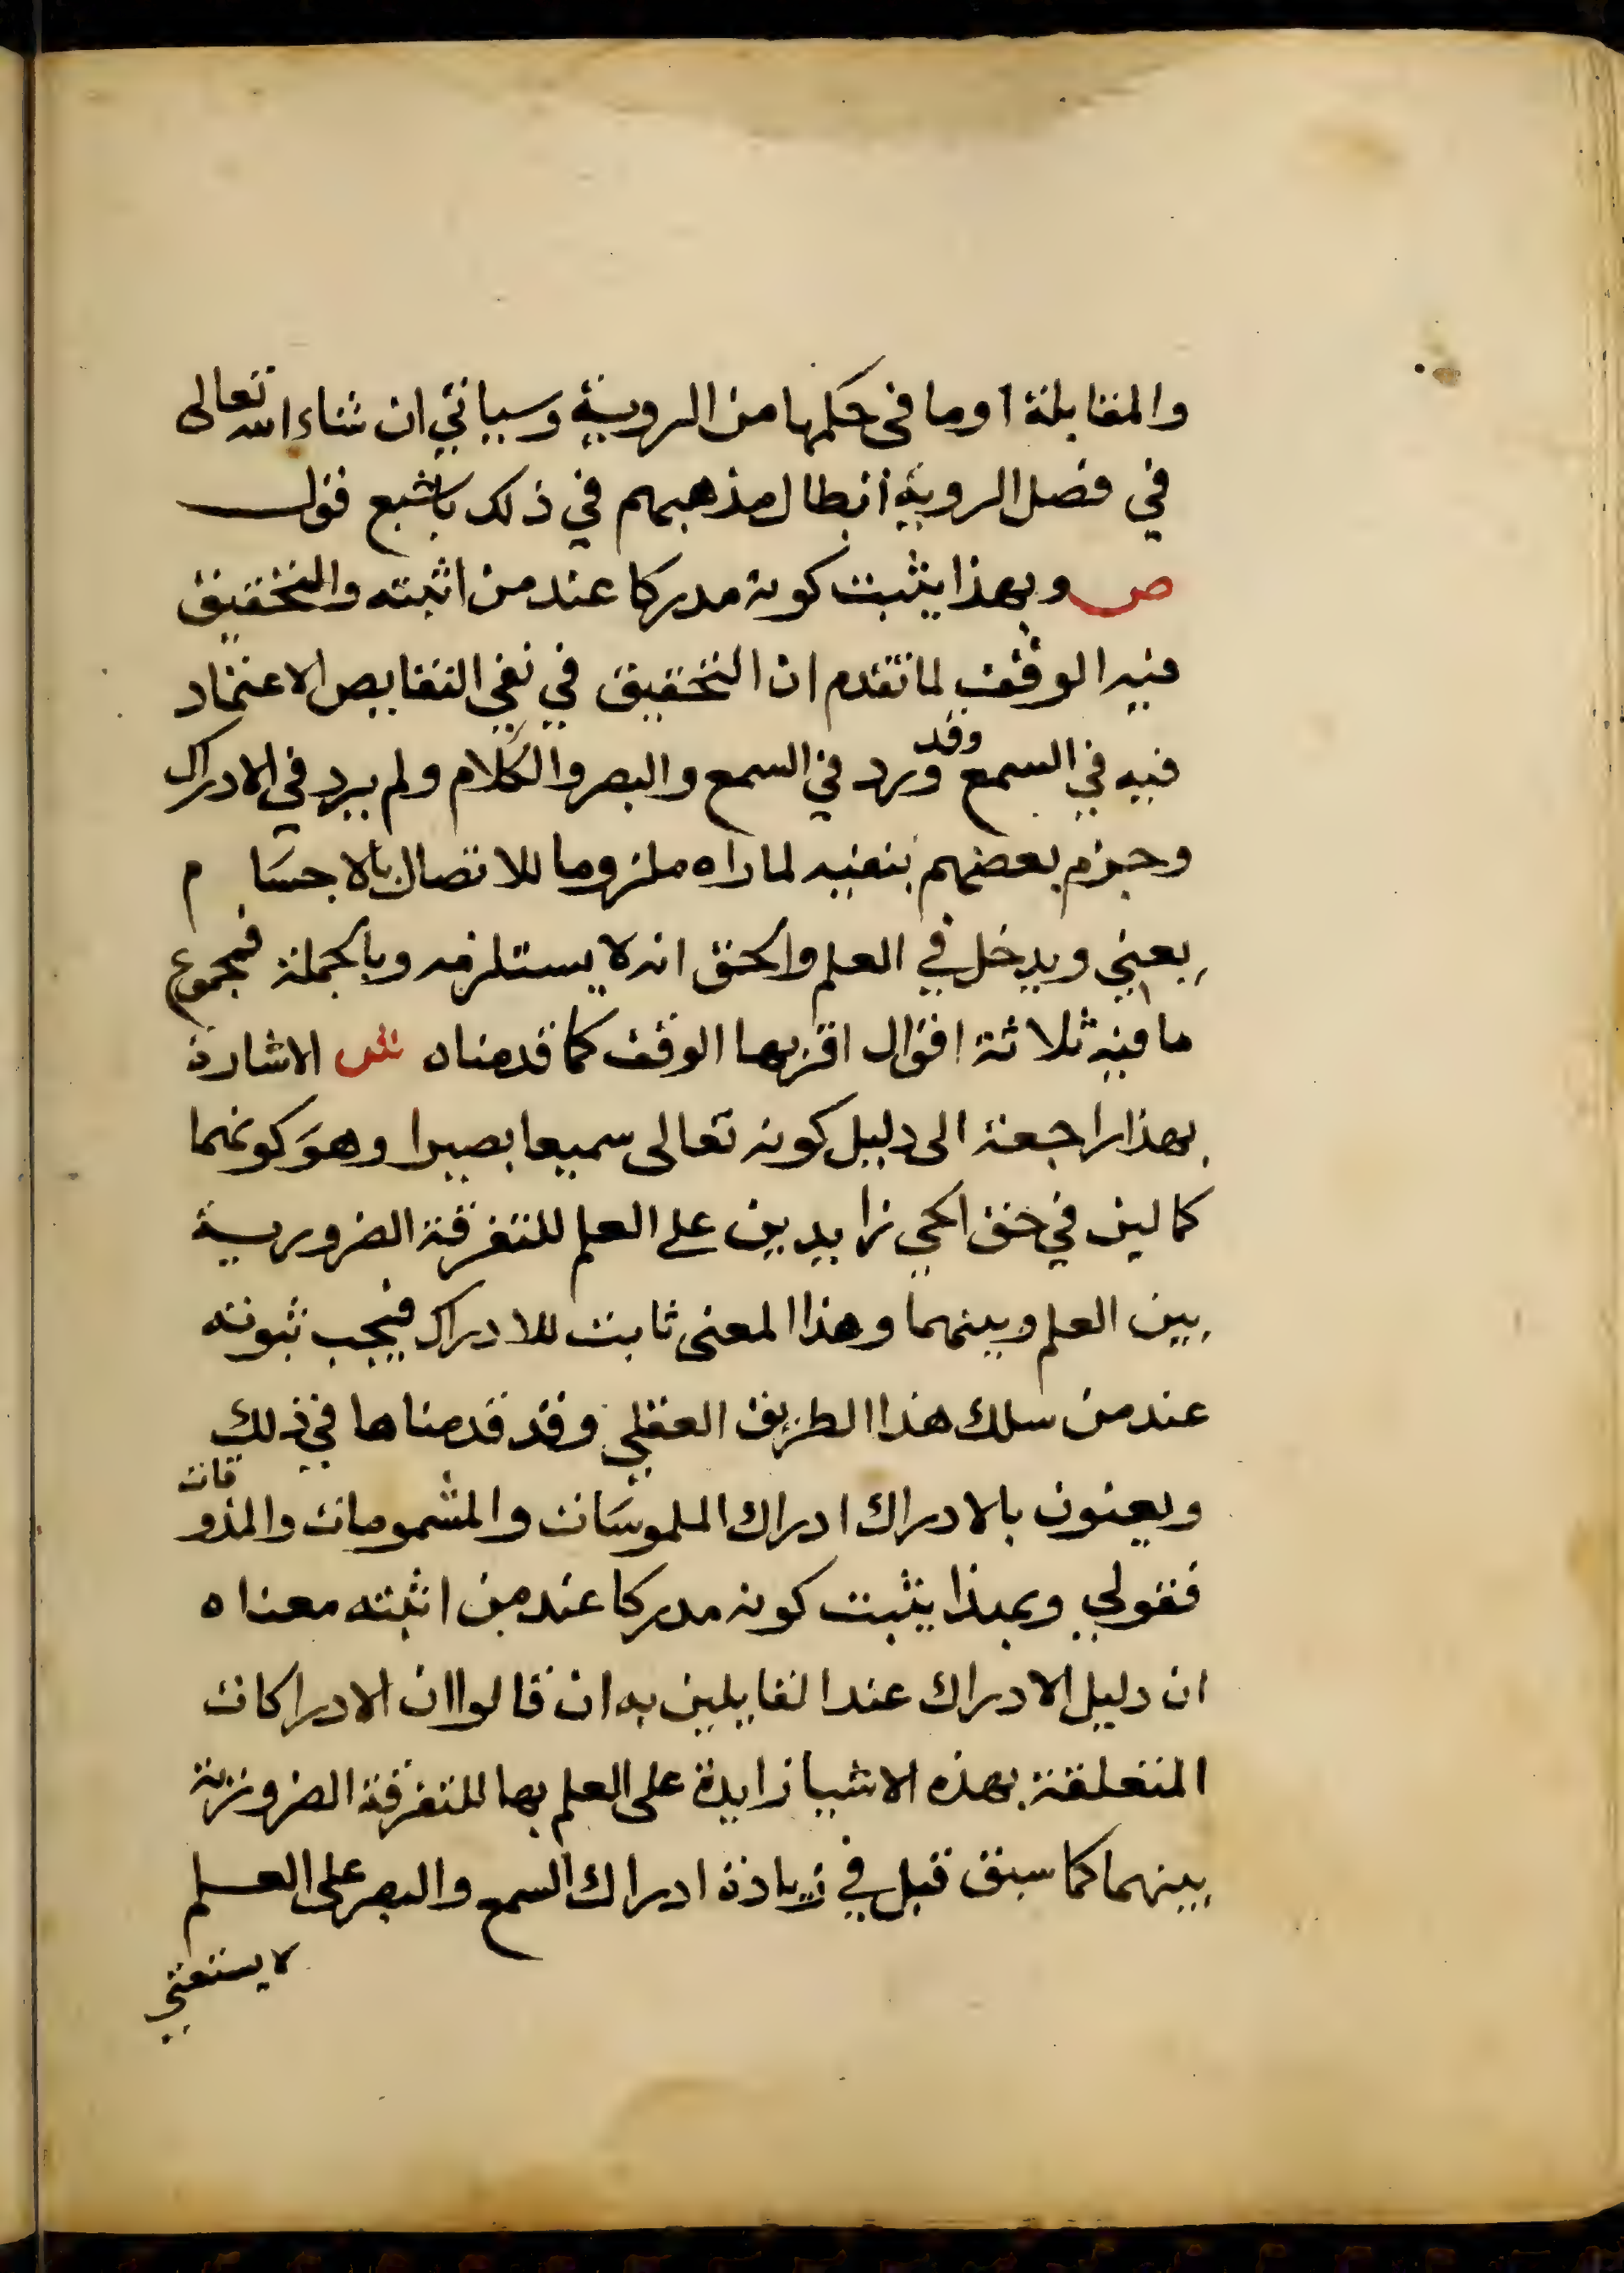 والمقابلة او ما في حكمها من الروية وسياتي ان شاء الله تعالى
في فصل الروية ابطال مذهبهم في ذلك باشبع قول
ص وبهذا يثبت كونه مدركا عند من اثبته والتحقيق
فيه الوقف لما تقدم ان التحقيق في نفي النقايص الاعتماد
فيه في السمع وقد ورد في السمع والبصر والكلام ولم يرد في الادراك
وجزم بعضهم بنفيه لما راه ملزوما للاتصال بالاجسام
يعني ويدخل في العلم والحق انه لا يستلزمه وبالجملة فمجموع
ما فيه ثلاثة اقوال اقربها الوقف كما قدمناه ش الاشارة
بهذا راجعة الى دليل كونه تعالى سميعا بصيرا وهو كونهما
كمالين في حق الحي زايدين على العلم للتفرقة الضرورية
بين العلم وبينهما وهذا المعنى ثابت للادراك فيجب ثبوته
عند من سلك هذا الطريق العقلي وقد قدمنا ما في ذلك
ويعنون بالادراك ادراك الملموسات والمشمومات والمذوقات
فقولي وبهذا يثبت كونه مدركا عند من اثبته معناه
ان دليل الادراك عند القايلين به ان قالوا ان الادراكات
المتعلقة بهذه الاشيا زايدة على العلم بها للتفرقة الضرورية
بينهما كما سبق قبل في زيادة ادراك السمع والبصر على العلم
لا يستغني